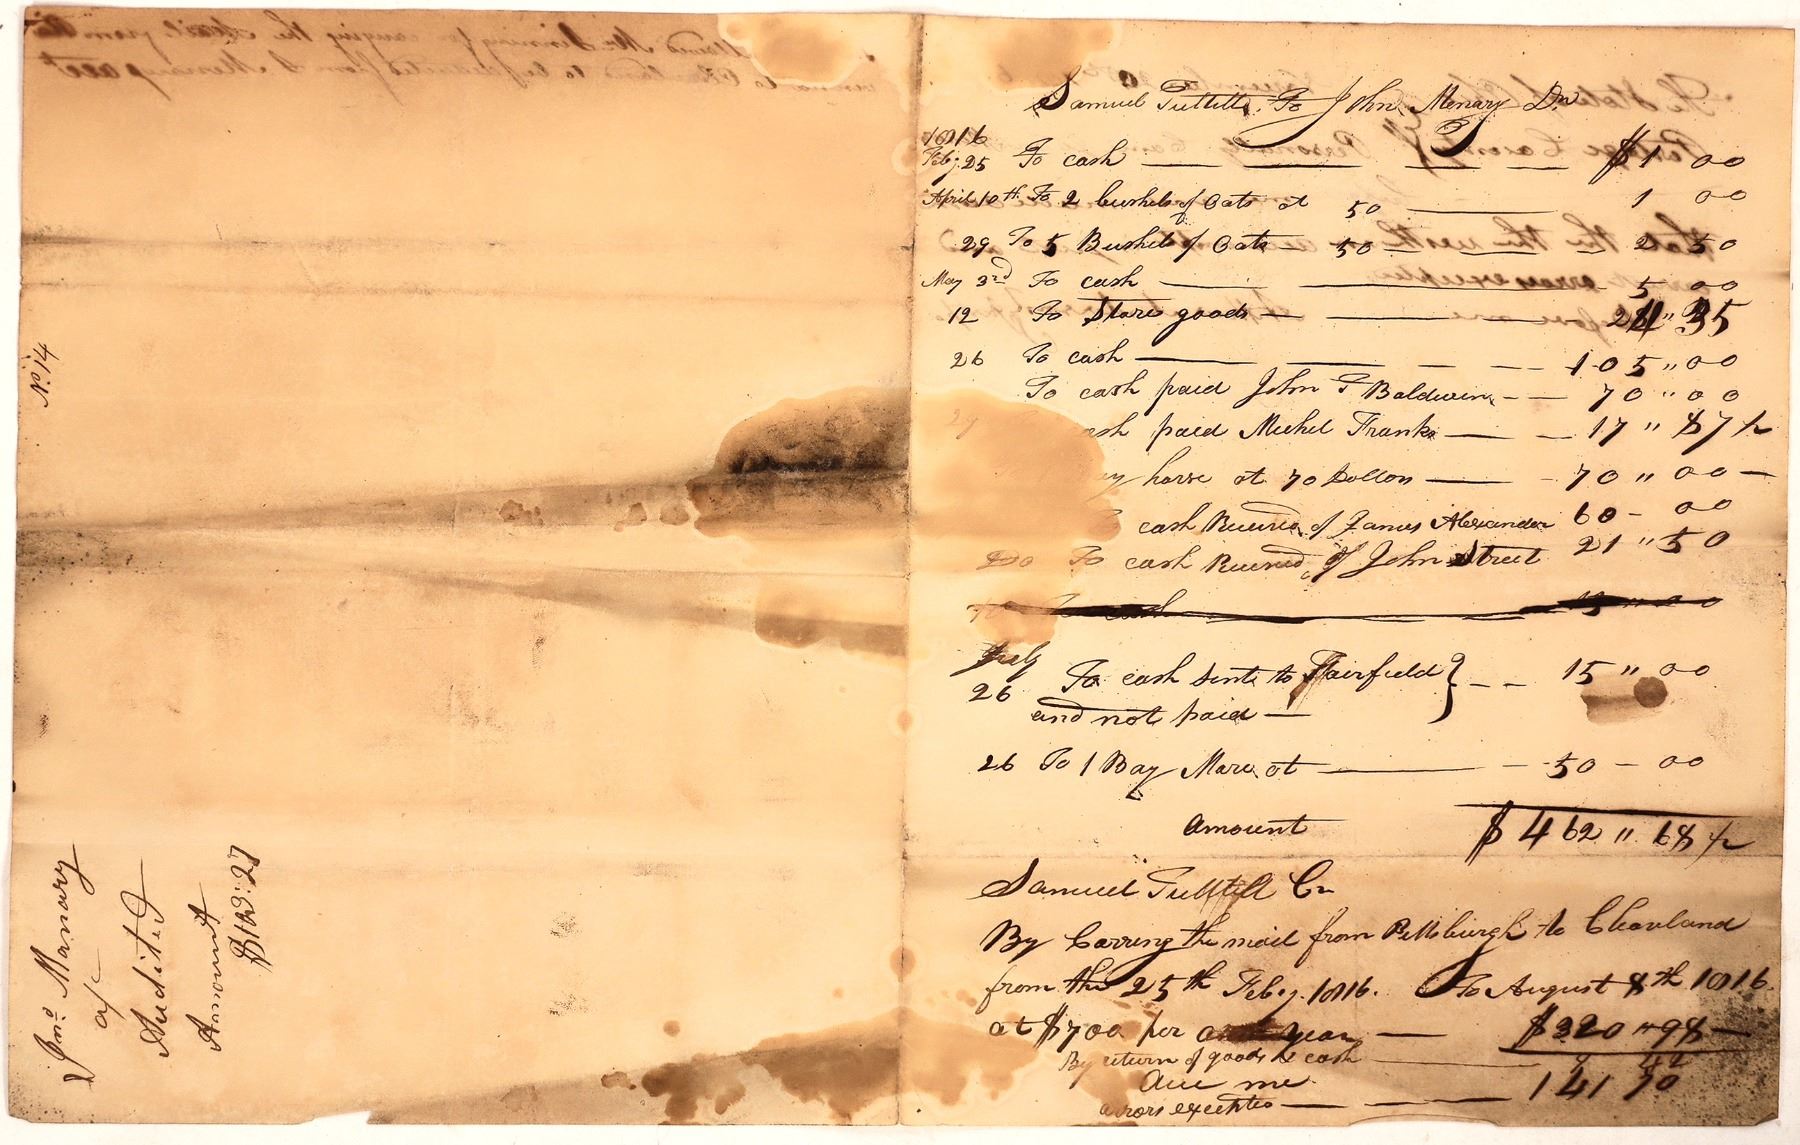 Samuel Tuttill To John Menary Dr
1816
Feby 25 To cash $1 00
April 10th To 2 bushels of Oats at 50 1 00
29 To 5 Bushels of Oats 50 2 50
May 3rd To cash 5 00
12 To Store goods 35
26 To cash 105 " 00
To cash paid John F Baldwin 70 " 00
29 ash paid Michel Franks 17 " 87 1/2
ay horse at 70 Dollors 70 " 00
cash Received of James Alexander 60 - 00
Do To cash Received of John Street 21 " 50
To cash 15 " 00
July
26 To cash sent to Fairfield } 15 " 00
and not paid
26 To 1 Bay Mare at 50 - 00
amount $462 " 68 1/2
Samuel Tuttill Cr
By Carring the mail from Pittsburgh to Cleavland
from the 25th Feby 1816. To August 8th 1816.
at $700 per year $320 " 98
By return of goods & cash
due me 141 70
errors excepted
No. 14
Jno Manary
a/c
Audited
Amount
$163:27